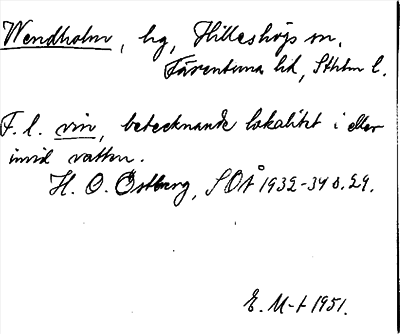 Wendholm, hg, Hilleshögs sn,
Färentuna hd, Sthlm l.
F. l. vin, betecknande lokalitet i eller
invid vatten.
H. O. Östberg, SOÅ 1932-34 s. 29.
E. M-t 1951.